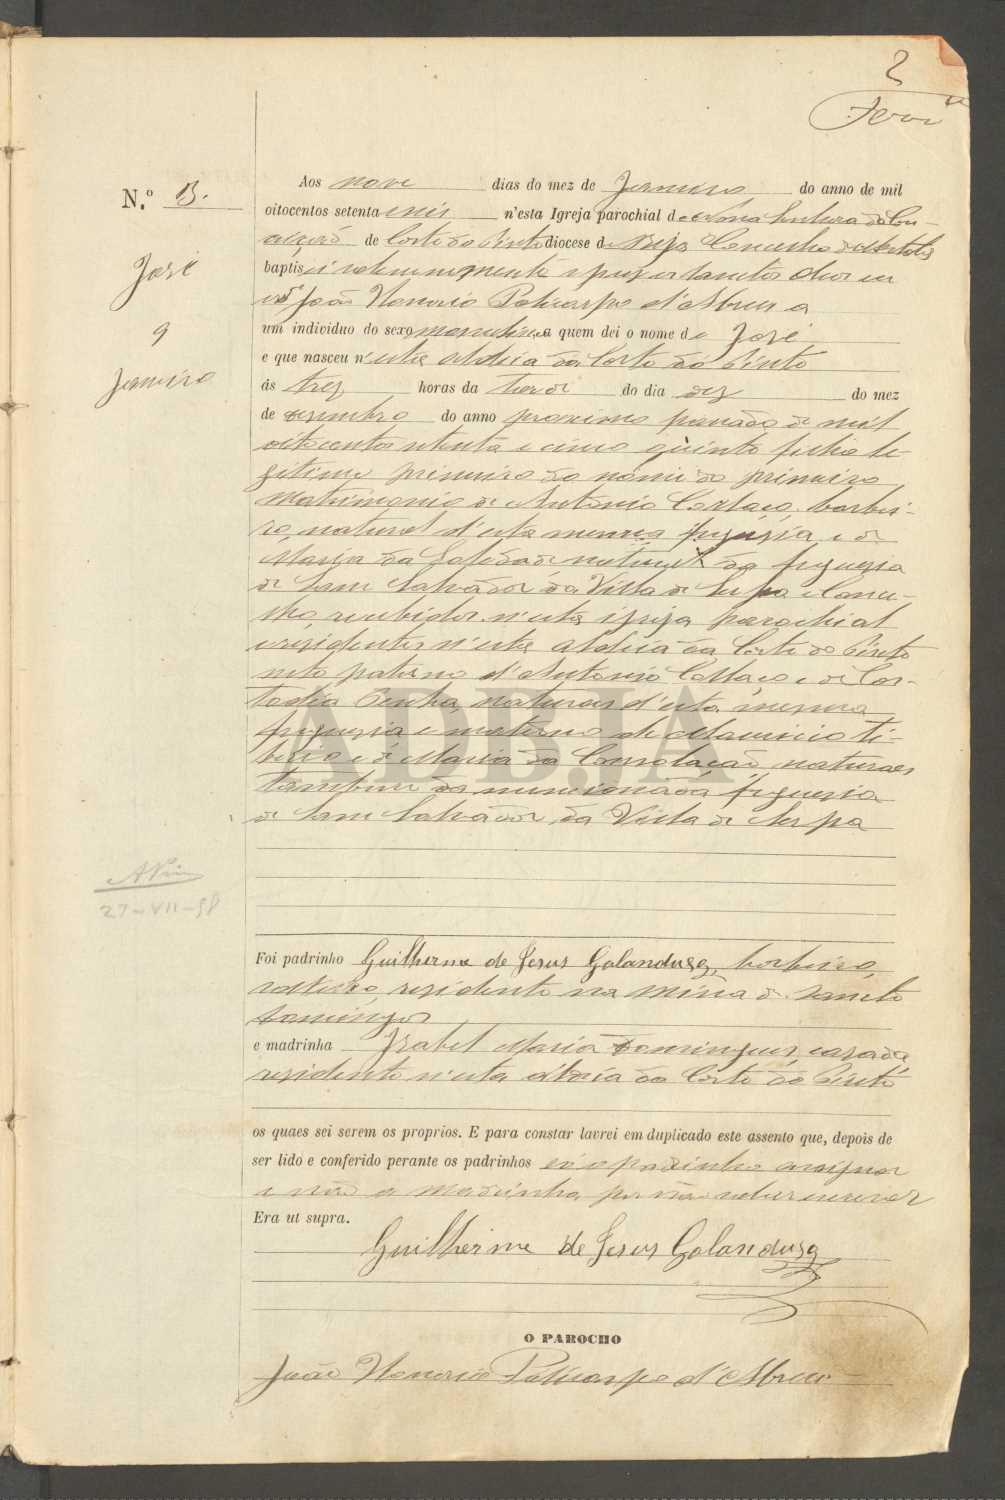 2
N.º 3.
José
9
Janeiro
Aos nove dias do mez de Janeiro do anno de mil
oitocentos setenta e seis n'esta Igreja parochial de Nossa Senhora da Con-
ceição de Corte do Pinto diocese de Beja Concelho de Mertola
baptisei solemnemente e puz os sanctos oleos eu
João Honorio Policarpo d'Abreu a
um individuo do sexo masculino a quem dei o nome de José
e que nasceu n'esta aldeia da Corte do Pinto
ás tres horas da tarde do dia dez do mez
de dezembro do anno proximo passado de mil
oitocentos setenta e cinco quinto filho le-
gitimo primeiro do nome do primeiro
matrimonio de Antonio Collaço, barbei-
ro, natural d'esta mesma freguesia e de
Maria da Soledade natural da freguesia
de Sam Salvador da Villa de Serpa e Conce-
lho, recebidos n'esta igreja parochial
e residentes n'esta aldeia da Corte do Pinto
neto paterno d'Antonio Collaço e de Cus-
todia Penha, naturaes d'esta mesma
freguesia e materno de Mauricio Ti-
burio e de Maria da Consolação naturaes
tambem da mencionada freguesia
de Sam Salvador da Villa de Serpa
ADBJA
27-VII-98
Foi padrinho Guilherme de Jesus Galanduga, barbeiro,
solteiro, residente na mina de Sancto
Domingos
e madrinha Izabel Maria Domingues, casada
residente n'esta aldeia da Corte do Pinto
os quaes sei serem os proprios. E para constar lavrei em duplicado este assento que, depois de
ser lido e conferido perante os padrinhos só o padrinho assignou
e não a madrinha por não saber escrever
Era ut supra.
Guilherme de Jesus Galanduga
O PAROCHO
João Honorio Policarpo d'Abreu